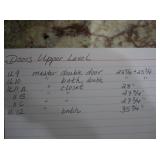 Doors Upper Level
U.9 master double door 23 3/4 + 23 3/4
U.10 " bath, double
U.11 A " closet 23"
U.11 B " " 23 3/4"
U.C " " 23 3/4"
U.12 " bath 35 3/4"